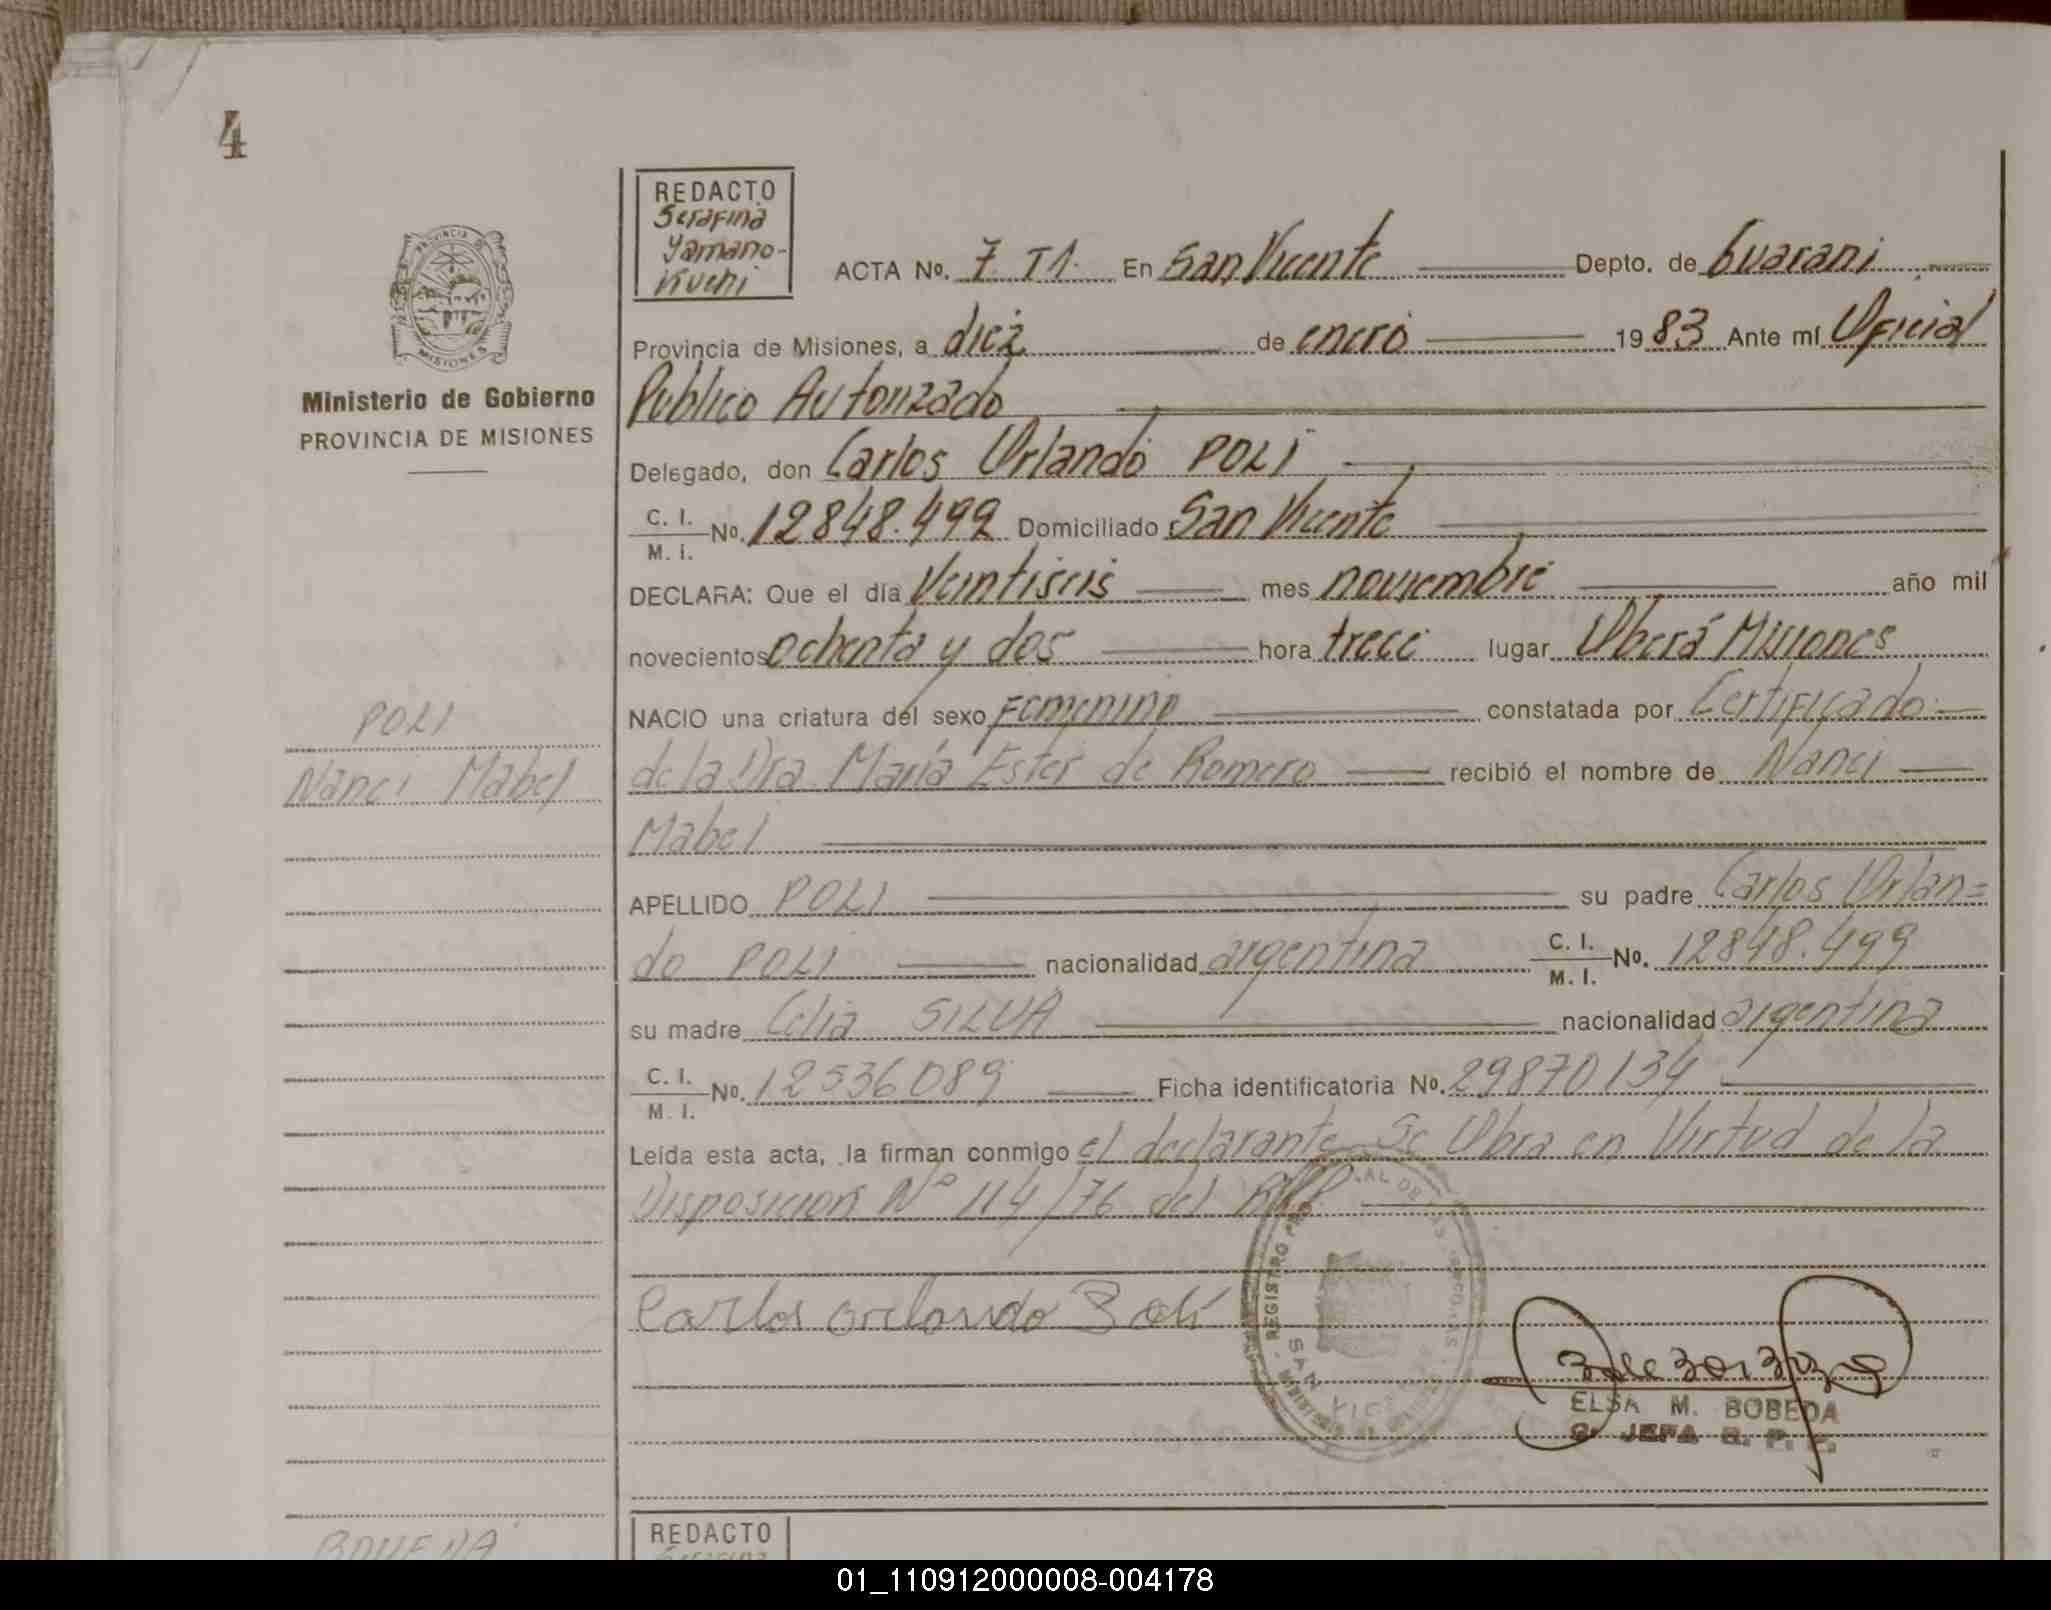 4
REDACTO
Serafina
Yamano-
Kuchi
PROVINCIA DE
MISIONES
Ministerio de Gobierno
PROVINCIA DE MISIONES
ACTA No. 7 T1. En San Vicente Depto. de Guarani
Provincia de Misiones, a diez de enero 1983 Ante mí Oficial
Publico Autorizado
Delegado, don Carlos Orlando POLI
C. I. M. I. No. 12848.499 Domiciliado San Vicente
DECLARA: Que el día Veintiseis mes noviembre año mil
novecientos ochenta y dos hora trece lugar Oberá Misiones
NACIO una criatura del sexo Femenino constatada por Certificado
de la Dra María Ester de Romero recibió el nombre de Nanci
Mabel
POLI
Nanci Mabel
APELLIDO POLI su padre Carlos Orlan=
do POLI nacionalidad argentina C. I. M. I. No. 12848.499
su madre Celia SILVA nacionalidad argentina
C. I. M. I. No. 12536089 Ficha identificatoria No. 29870134
Leída esta acta, la firman conmigo el declarante Se Obra en Virtud de la
Disposicion Nº 114/76 del RPP
Carlos orlando Poli
REGISTRO
SAN VICENTE
ELSA M. BOBEDA
JEFA R. P. P.
REDACTO
Serafina
01_110912000008-004178